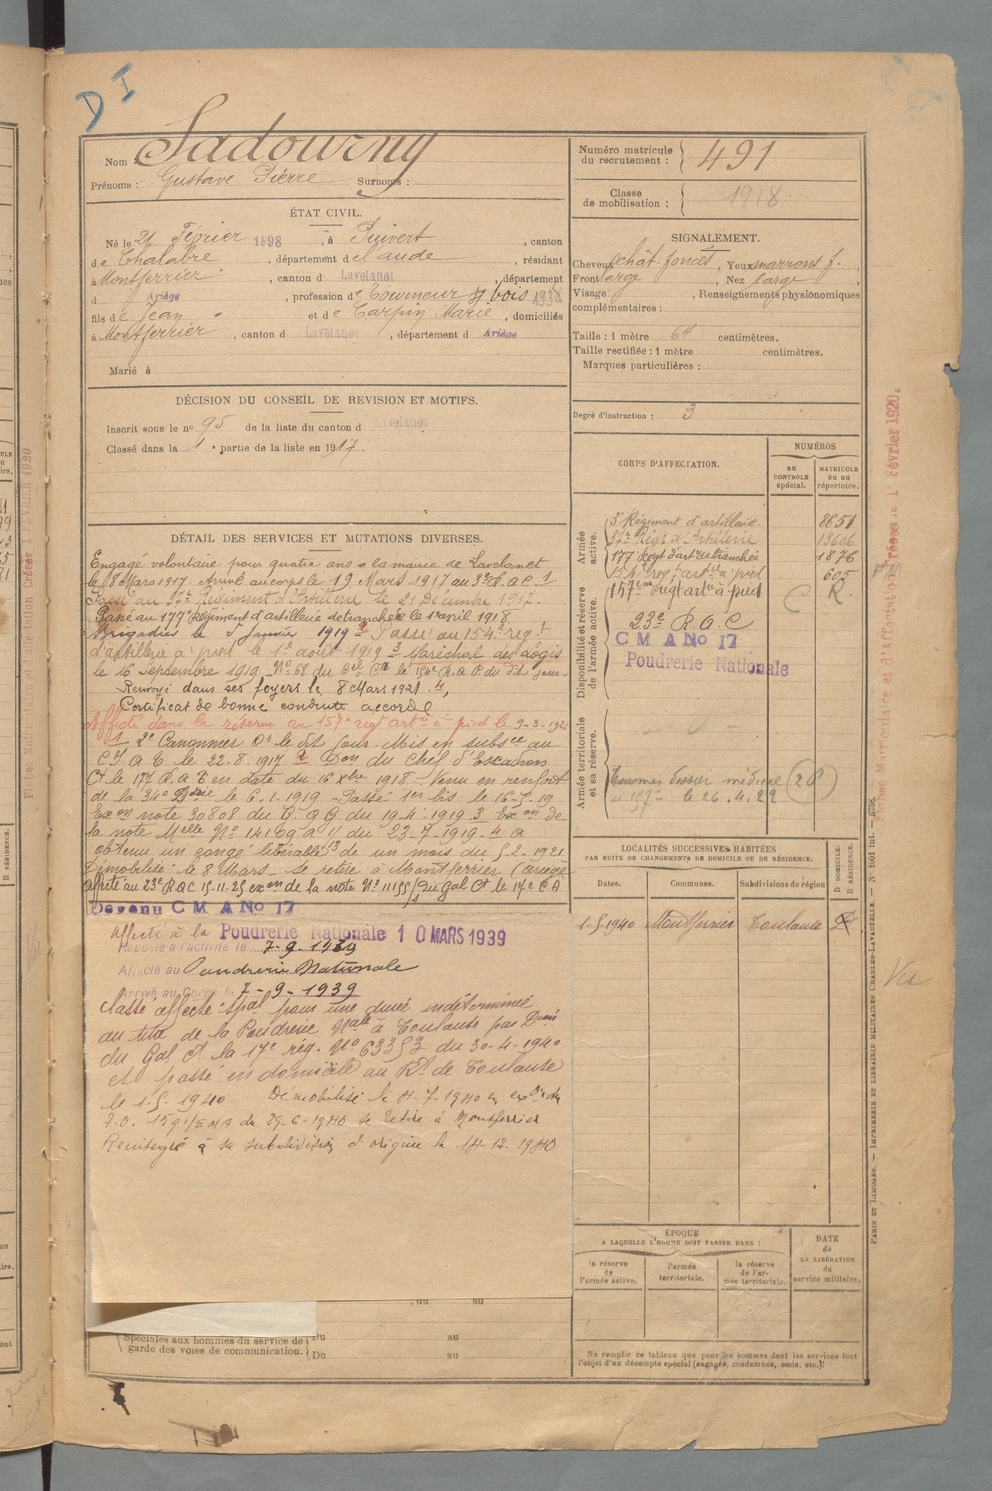 D I
Nom : Sadourny
Prénoms : Gustave Pierre Surnoms :
ÉTAT CIVIL.
Né le 21 Février 1898, à Puivert, canton
de Chalabre, département de l'aude, résidant
à Montferrier, canton d Lavelanet, département
d Ariège, profession de Tourneur s/ bois 1938
fils de Jean et de Tarpin Marie, domiciliés
à Montferrier, canton d Lavelanet, département d Ariège
Marié à
DÉCISION DU CONSEIL DE REVISION ET MOTIFS.
Inscrit sous le no 95 de la liste du canton d Lavelanet
Classé dans la 1e partie de la liste en 1917.
DÉTAIL DES SERVICES ET MUTATIONS DIVERSES.
Engagé volontaire pour quatre ans a la mairie de Lavelanet
le 18 Mars 1917. Arrivé au corps le 19 Mars 1917 au 3e R.a.C. 1
Passé au 37me Régiment d'Artillerie le 21 Décembre 1917.
Passé au 177e Régiment d'artillerie de tranchée le 1er avril 1918
Brigadier le 5 Janvier 1919 2 Passé au 154e régt
d'artillerie à pied le 1er août 1919 3 Maréchal des Logis
le 16 Septembre 1919 No 68 du Cel Ct le 154e R.a.P. du dit jour.
Renvoyé dans ses foyers le 8 Mars 1921. 4,
Certificat de bonne conduite accordé
Affecté dans la réserve au 157e regt arte à pied le 9-3-1921
1 2e Canonnier Ct le dit jour. Mis en subsce au
C.I.A.T. le 22.8.1917 2 Don du Chef d'Escadron
Ct le 177 R.A.T en date du 16 Xbre 1918 Venu en renfort
de la 34e Bie le 6.1.1919 - Passé 1er bis le 16-5-19
Exon note 30808 du G.Q.G du 19-4-1919 3 Exon de
la note Melle No 14169 a 11 du 23-7-1919. 4 a
obtenu un congé libérable de un mois du 5-2-1921
Démobilisé le 8 Mars - se retire à Montferrier (ariège
Affecté au 23e RAC 15-11-25 exon de la note No 11155/S du Gal Ct le 17e C A
Devenu C M A No 17
Affecté à la Poudrerie Nationale 10 MARS 1939
Rappelé à l'activité le 7-9-1939
Affecté au Poudrerie Nationale
Arrivé au Corps le 7-9-1939
Classé affecté spal pour une durée indéterminée
au titre de la Poudrerie Nale à Toulouse par Dson
du Gal Ct la 17e rég. No 63353 du 30-4-1940
et passé en domicile au Rt de Toulouse
le 1-5-1940. Démobilisé le 4-7-1940 en exon de
I.O. 1591/EMA du 29-6-1940 se retire à Montferrier
Réintégré à sa subdivision d'origine le 14-12-1940
Spéciales aux hommes du service de garde des voies de communication.
Du au
Du au
Numéro matricule du recrutement : 491
Classe de mobilisation : 1918
SIGNALEMENT.
Cheveux chât. foncés, Yeux marrons f.
Front large, Nez large
Visage , Renseignements physionomiques
complémentaires :
Taille : 1 mètre 64 centimètres.
Taille rectifiée : 1 mètre centimètres.
Marques particulières :
Degré d'instruction : 3
CORPS D'AFFECTATION.
NUMÉROS
AU CONTRÔLE spécial.
MATRICULE ou au répertoire.
Armée active.
3e Régiment d'artillerie. 8651
37me Régt d'Artillerie 13606
177e Regt d'art de tranchée 1876
154e regt arte à pied 605
Disponibilité et réserve de l'armée active.
157eme regt arte à pied C R.
23e R.A.C
C M A No 17
Poudrerie Nationale
Armée territoriale et sa réserve.
dossier médical (20)
le 26.4.22
LOCALITÉS SUCCESSIVES HABITÉES
PAR SUITE DE CHANGEMENTS DE DOMICILE OU DE RÉSIDENCE.
Dates. Communes. Subdivisions de région D DOMICILE. R RÉSIDENCE.
1-5-1940 Montferrier Toulouse D
ÉPOQUE
A LAQUELLE L'HOMME DOIT PASSER DANS :
la réserve de l'armée active.
l'armée territoriale.
la réserve de l'armée territoriale.
DATE de LA LIBÉRATION du service militaire.
Ne remplir ce tableau que pour les hommes dont les services font
l'objet d'un décompte spécial (engagés, condamnés, omis, etc.).
Vu
PARIS ET LIMOGES. — IMPRIMERIE ET LIBRAIRIE MILITAIRES CHARLES-LAVAUZELLE.
Fiches Matriculaire et d'Affectation créées le 1 Février 1920.